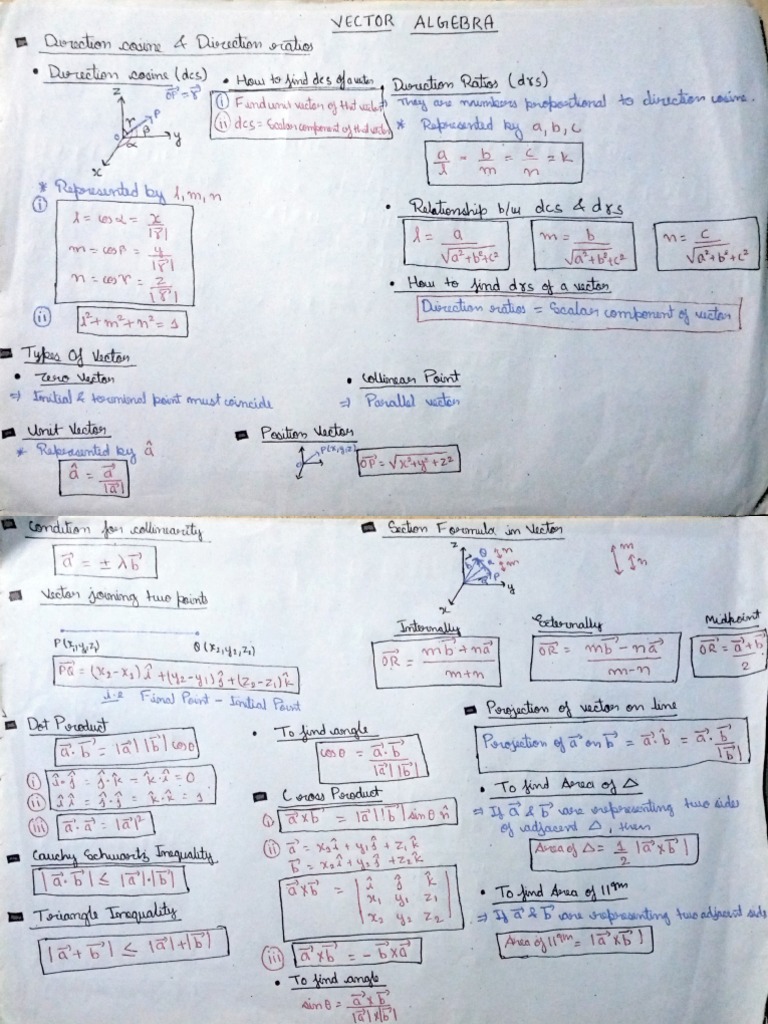 VECTOR ALGEBRA
Direction cosine & Direction ratios
• Direction cosine (dcs)
z
OP⃗ = r⃗
r
P
β
α
y
x
* Represented by l, m, n
(i)
l = cosα = x/|r⃗|
m = cosβ = y/|r⃗|
n = cosγ = z/|r⃗|
(ii) l² + m² + n² = 1
• How to find dcs of a vector
(i) Find unit vector of that vector
(ii) dcs = Scalar component of that vector
Direction Ratios (drs)
⇒ They are numbers proportional to direction cosine.
* Represented by a, b, c
a/l = b/m = c/n = k
• Relationship b/w dcs & drs
l = a/√a²+b²+c²
m = b/√a²+b²+c²
n = c/√a²+b²+c²
• How to find drs of a vector
Direction ratios = Scalar component of vector
Types Of Vector
• Zero Vector
⇒ Initial & terminal point must coincide
• Collinear Point
⇒ Parallel vector
Unit Vector
* Represented by â
â = a⃗/|a⃗|
Position Vector
P(x,y,z)
OP⃗ = √x²+y²+z²
Condition for collinearity
a⃗ = ± λb⃗
Vector joining two points
P(x₁,y₁,z₁) Q(x₂,y₂,z₂)
PQ⃗ = (x₂-x₂)î + (y₂-y₁)ĵ + (z₂-z₁)k̂
i.e Final Point - Initial Point
Section Formula in Vector
z
Q
n
m
R
P
y
x
m
n
Internally
OR⃗ = mb⃗ + na⃗/m+n
Externally
OR⃗ = mb⃗ - na⃗/m-n
Midpoint
OR⃗ = a⃗+b⃗/2
Dot Product
a⃗ . b⃗ = |a⃗| |b⃗| cosθ
(i) î.ĵ = ĵ.k̂ = k̂.î = 0
(ii) î.î = ĵ.ĵ = k̂.k̂ = 1
(iii) a⃗ . a⃗ = |a⃗|²
Cauchy Schwartz Inequality
|a⃗ . b⃗| ≤ |a⃗|.|b⃗|
Triangle Inequality
|a⃗ + b⃗| ≤ |a⃗|+|b⃗|
• To find angle
cosθ = a⃗ . b⃗/|a⃗||b⃗|
Cross Product
(i) a⃗xb⃗ = |a⃗| |b⃗| sinθ n̂
(ii) a⃗ = x₁î + y₁ĵ + z₁k̂
b⃗ = x₂î + y₂ĵ + z₂k̂
a⃗xb⃗ = | î ĵ k̂ |
| x₁ y₁ z₁ |
| x₂ y₂ z₂ |
(iii) a⃗xb⃗ = - b⃗xa⃗
• To find angle
sinθ = a⃗xb⃗/|a⃗|x|b⃗|
Projection of vector on line
Projection of a⃗ on b⃗ = a⃗ . b̂ = a⃗ . b⃗/|b⃗|
• To find Area of Δ
⇒ If a⃗ & b⃗ are representing two sides
of adjacent Δ, then
Area of Δ = 1/2 |a⃗xb⃗|
• To find Area of 11gm
⇒ If a⃗ & b⃗ are representing two adjacent side
Area of 11gm = |a⃗xb⃗|